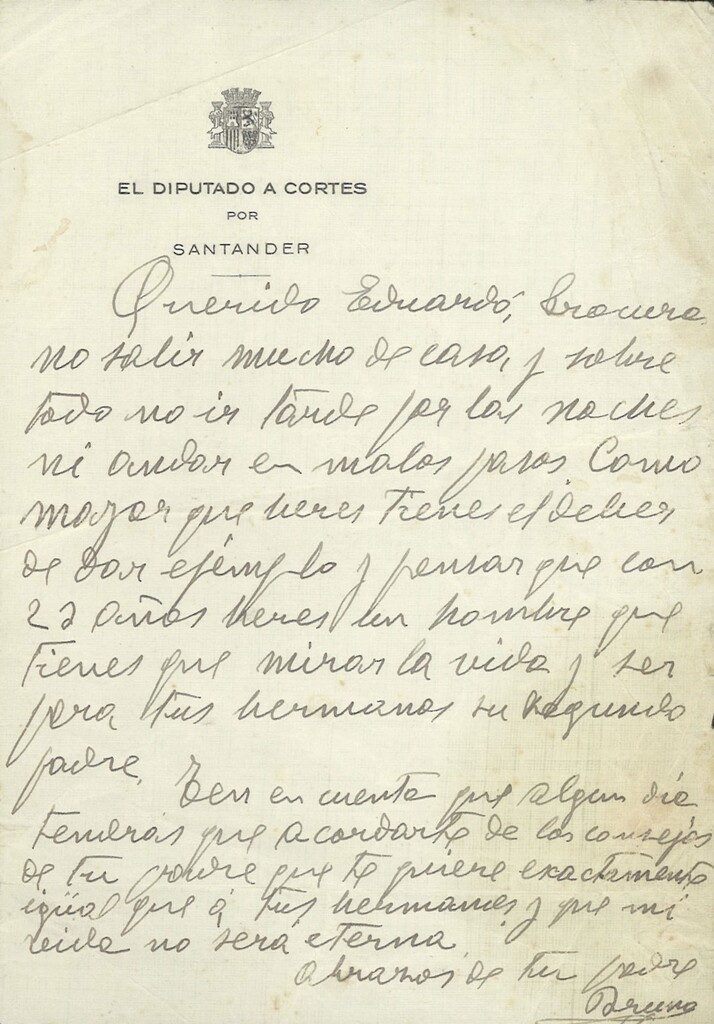 EL DIPUTADO A CORTES
POR
SANTANDER
Querido Eduardo, Procura
no salir mucho de casa, y sobre
todo no ir tarde por las noches
ni andar en malos pasos Como
mayor que heres tienes el deber
de dar ejémplo y pensar que con
22 años heres un hombre que
tienes que mirar la vida y ser
para tus hermanos su segundo
padre.
Ten en cuenta que algun dia
tendrás que acordarte de los consejos
de tu padre que te quiere exactamente
igüal que á tus hermanos y que mi
vida no será eterna
Abrazos de tu padre
Bruno